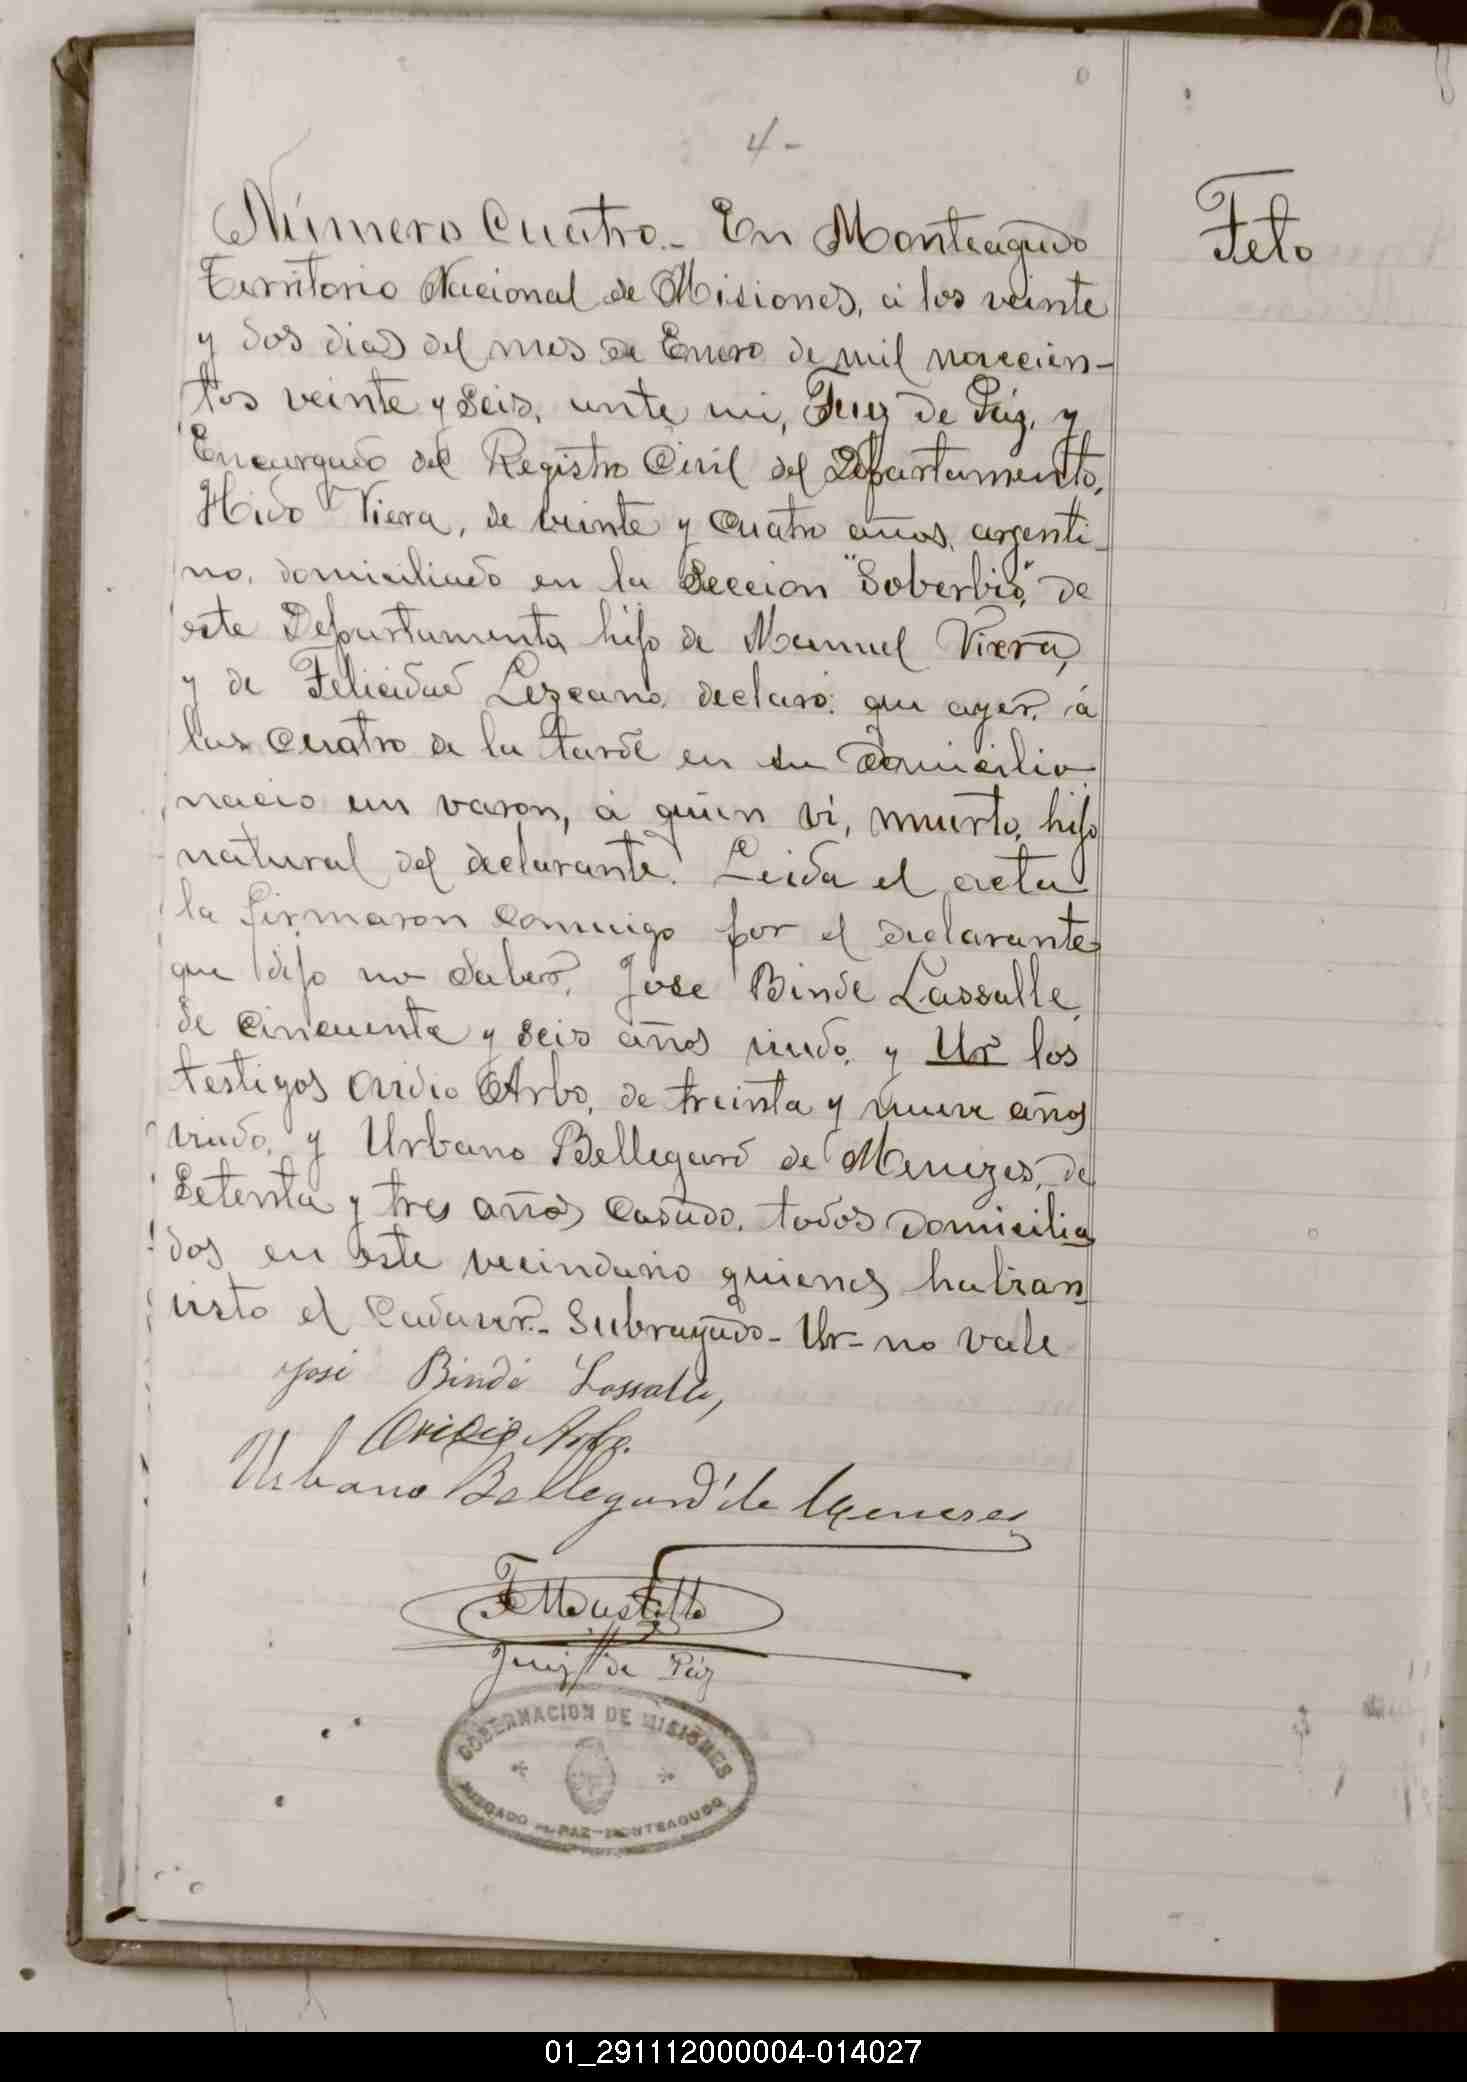 4-
Número Cuatro.- En Monteagudo
Feto
Territorio Nacional de Misiones, á los veinte
y dos dias del mes de Enero de mil novecien-
tos veinte y seis, ante mi, Juez de Páz, y
Encargado del Registro Civil del Departamento,
Hido Viera, de veinte y cuatro años, argenti-
no, domiciliado en la Seccion "Soberbio", de
este Departamento, hijo de Manuel Viera,
y de Felicidad Lezcano, declaró: que ayer, á
las cuatro de la tarde en su domicilio
nacio un varon, á quien ví, muerto, hijo
natural del declarante. Leida el acta
la firmaron conmigo por el declarante
que dijo no saber, Jose Binde Lassalle,
de cincuenta y seis años viudo, y Ur los
testigos Ovidio Arbo, de treinta y nueve años
viudo, y Urbano Bellegard de Menezes, de
setenta y tres años, casado, todos domicilia
dos en este vecindario quienes habian
visto el cadaver.- Subrayado - Ur - no vale
José Bindé Lassalle,
Ovidio Arbo.
Urbano Bellegard de Meneses
Juez de Páz
GOBERNACION DE MISIONES
JUZGADO DE PAZ-MONTEAGUDO
01_291112000004-014027